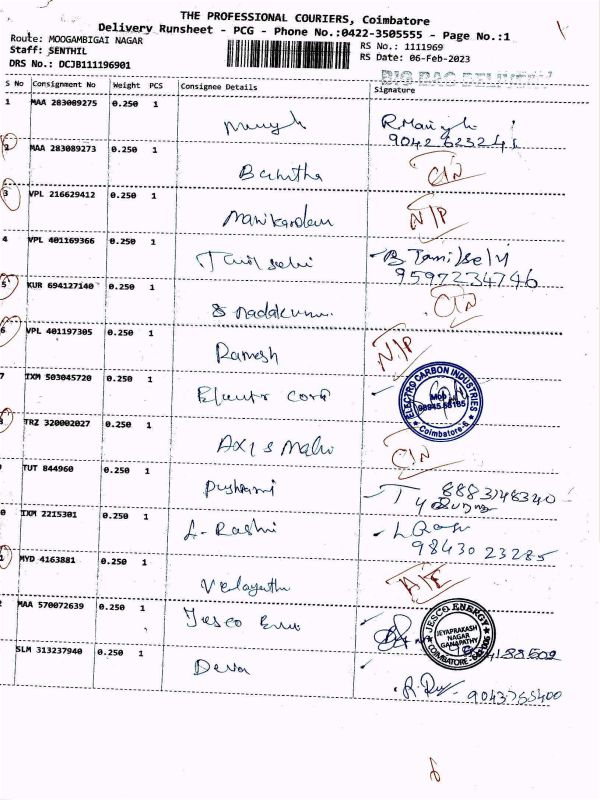 THE PROFESSIONAL COURIERS, Coimbatore
Delivery Runsheet - PCG - Phone No.:0422-3505555 - Page No.:1
Route: MOOGAMBIGAI NAGAR
Staff: SENTHIL
DRS No.: DCJB111196901
RS No.: 1111969
RS Date: 06-Feb-2023
BIG BAG DELIVERY
S No Consignment No Weight PCS Consignee Details Signature
1 MAA 283089275 0.250 1
R.Manigh
9042623241
2 MAA 283089273 0.250 1
Banitha CIN
3 VPL 216629412 0.250 1
Manikandan N/P
4 VPL 401169366 0.250 1
Tamilselvi B Tamilselvi
9597234746
5 KUR 694127140 0.250 1
CIN
6 VPL 401197305 0.250 1
Ramesh N/P
7 IXM 503045720 0.250 1
Electro Corp
ELECTRO CARBON INDUSTRIES
Mob
Coimbatore-6
TRZ 320002027 0.250 1
Axis Malu CIN
TUT 844960 0.250 1
Pushpami 8883148340
0 IXM 2215301 0.250 1
L. Rashi
9843023285
MYD 4163881 0.250 1
Velayathu A/E
2 MAA 570072639 0.250 1
Jesco Ener
JESCO ENERGY
JEYAPRAKASH
NAGAR
GANAPATHY
SLM 313237940 0.250 1
Deva
9043755400